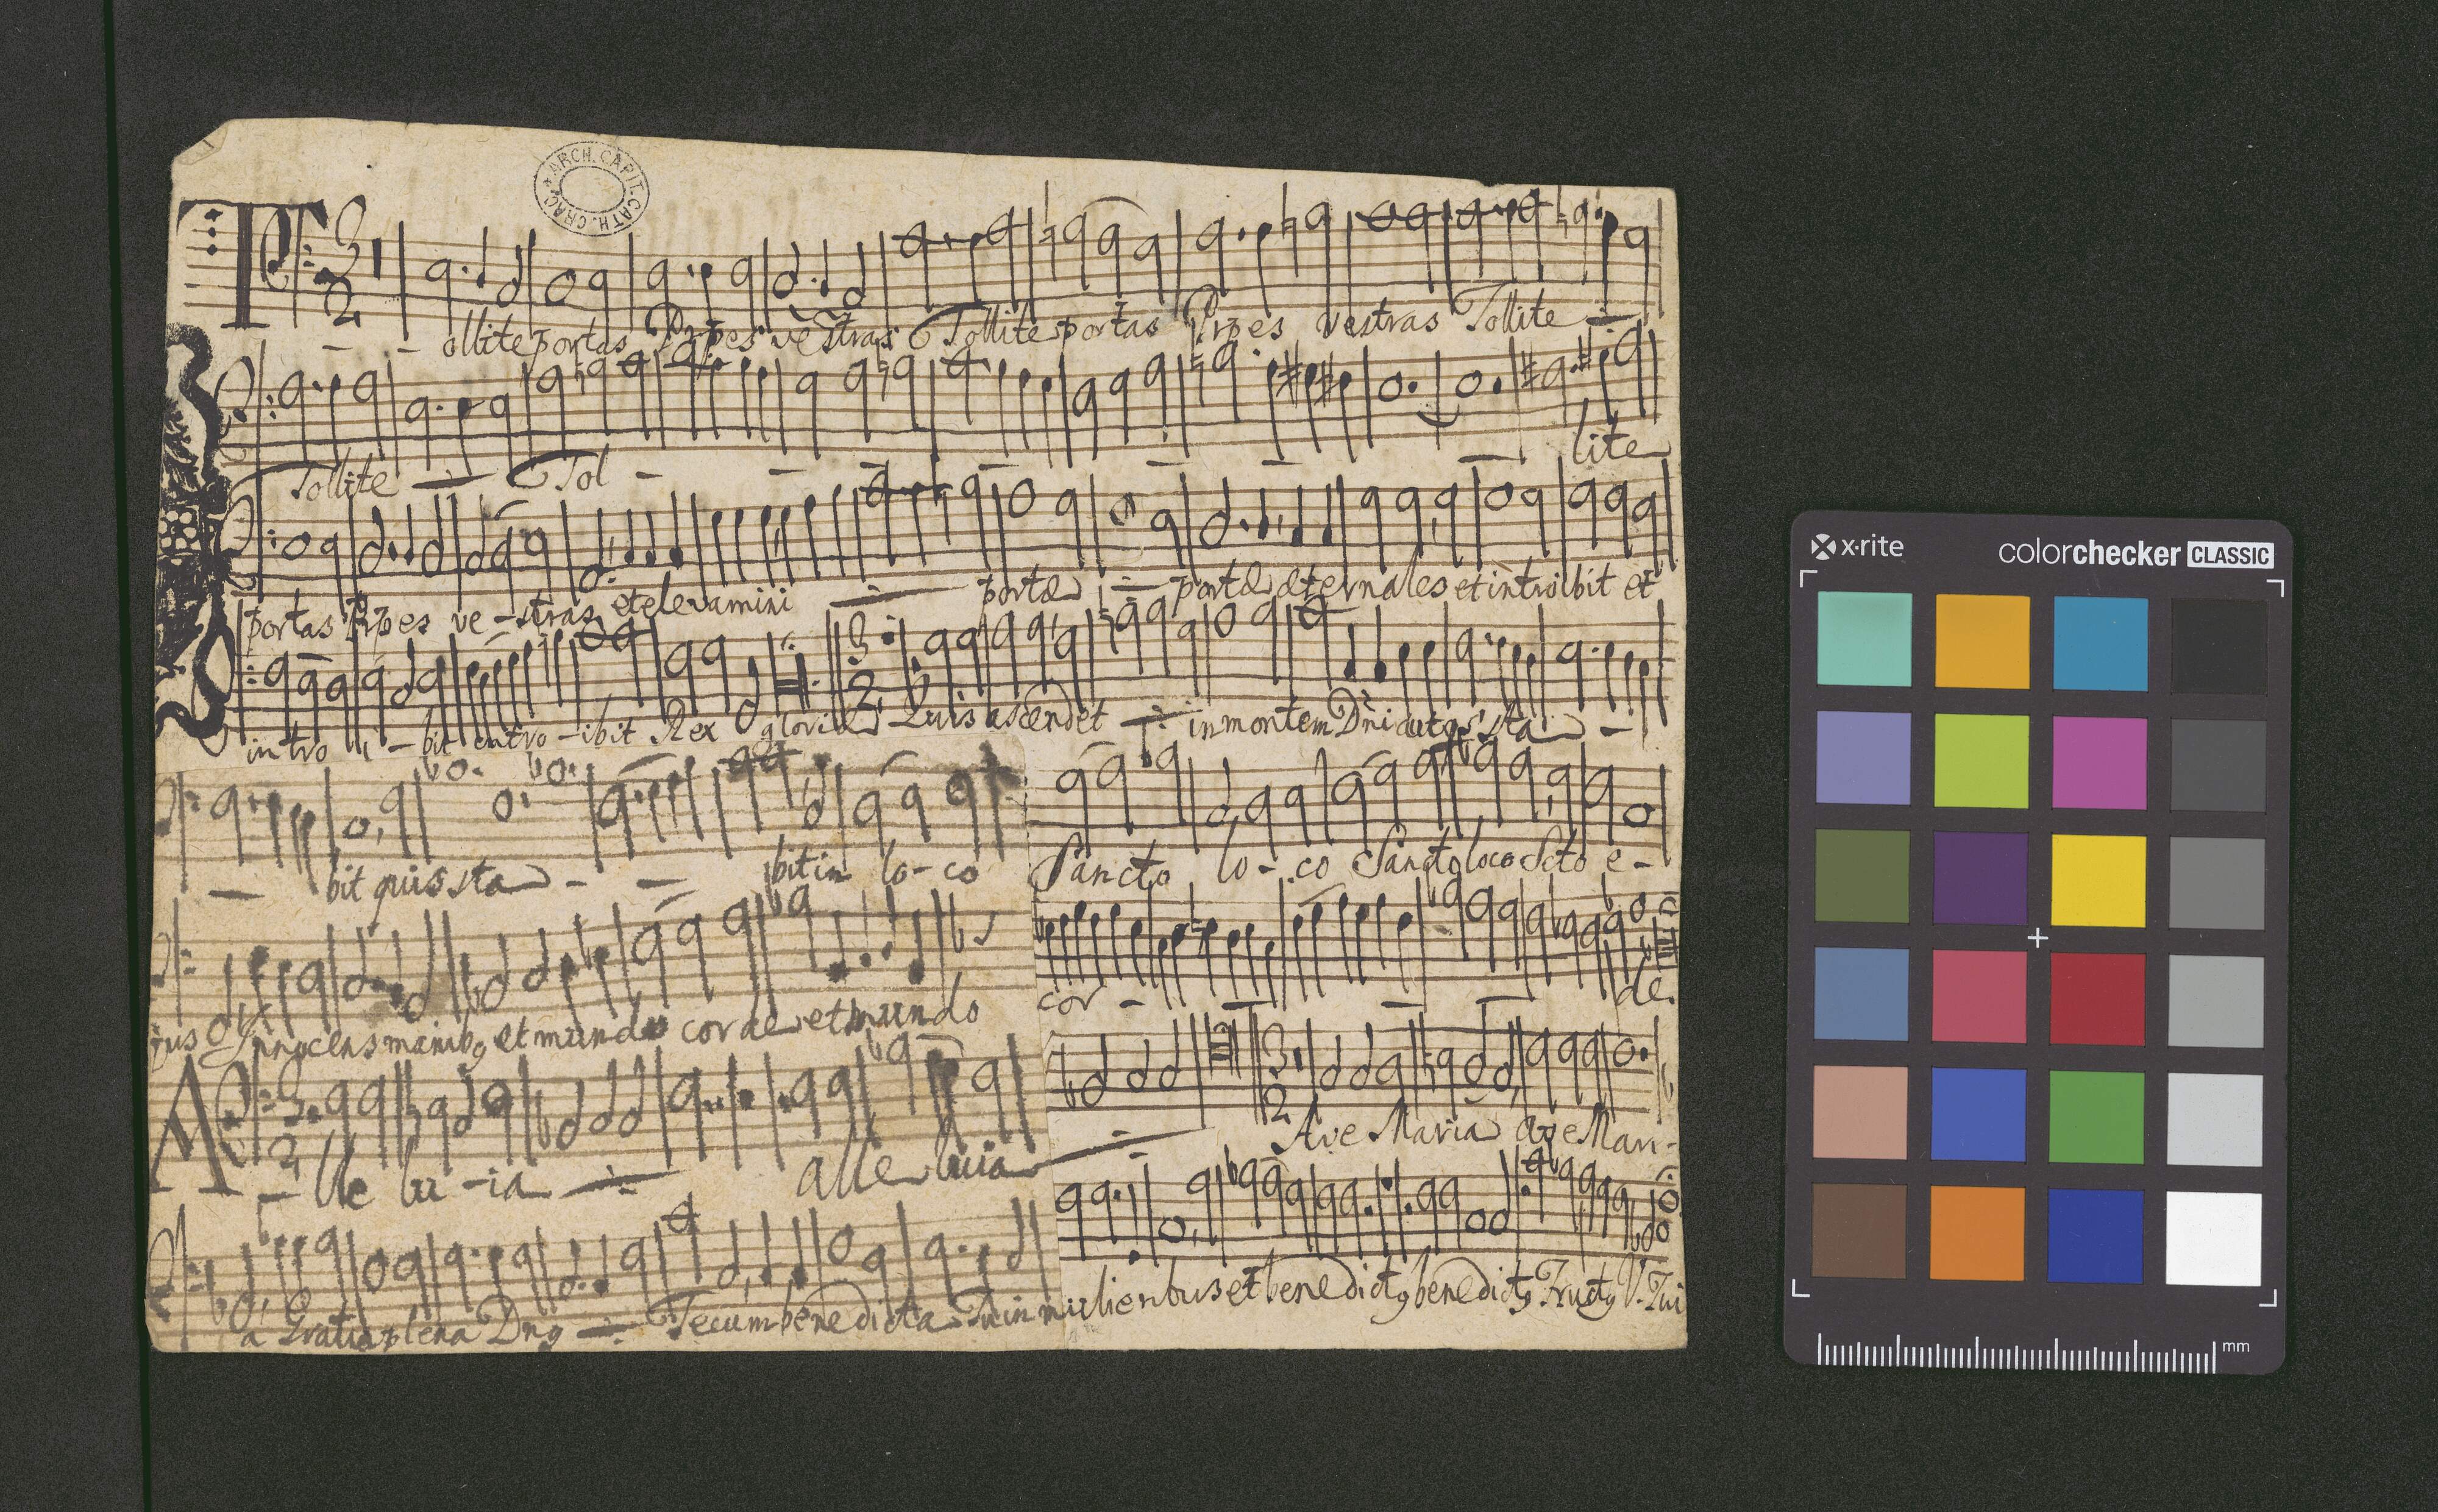 ARCH. CAPIT. CATH. CRAC.
3
2
Tollite portas Prpes vestras Tollite portas Prpes vestras Tollite
Tollite Tol - lite
portas Prpes ve - stras et elevamini portæ portæ æternales et introibit et
3
2
intro i - bit intro - ibit Rex gloriæ Quis ascendet in montem Dni sta -
bit quis sta - bit in lo - co Sancto lo - co Sancto loco Scto e -
ius Innocens manibq et mundo corde et mundo cor - de.
3
2
3
2
Alle lu - ia alle luia Ave Maria ave Mari -
a Gratia plena Dnq Tecum benedicta Tu in mulieribus et benedictq benedictq Fructq V. Tui
x-rite
colorchecker CLASSIC
mm